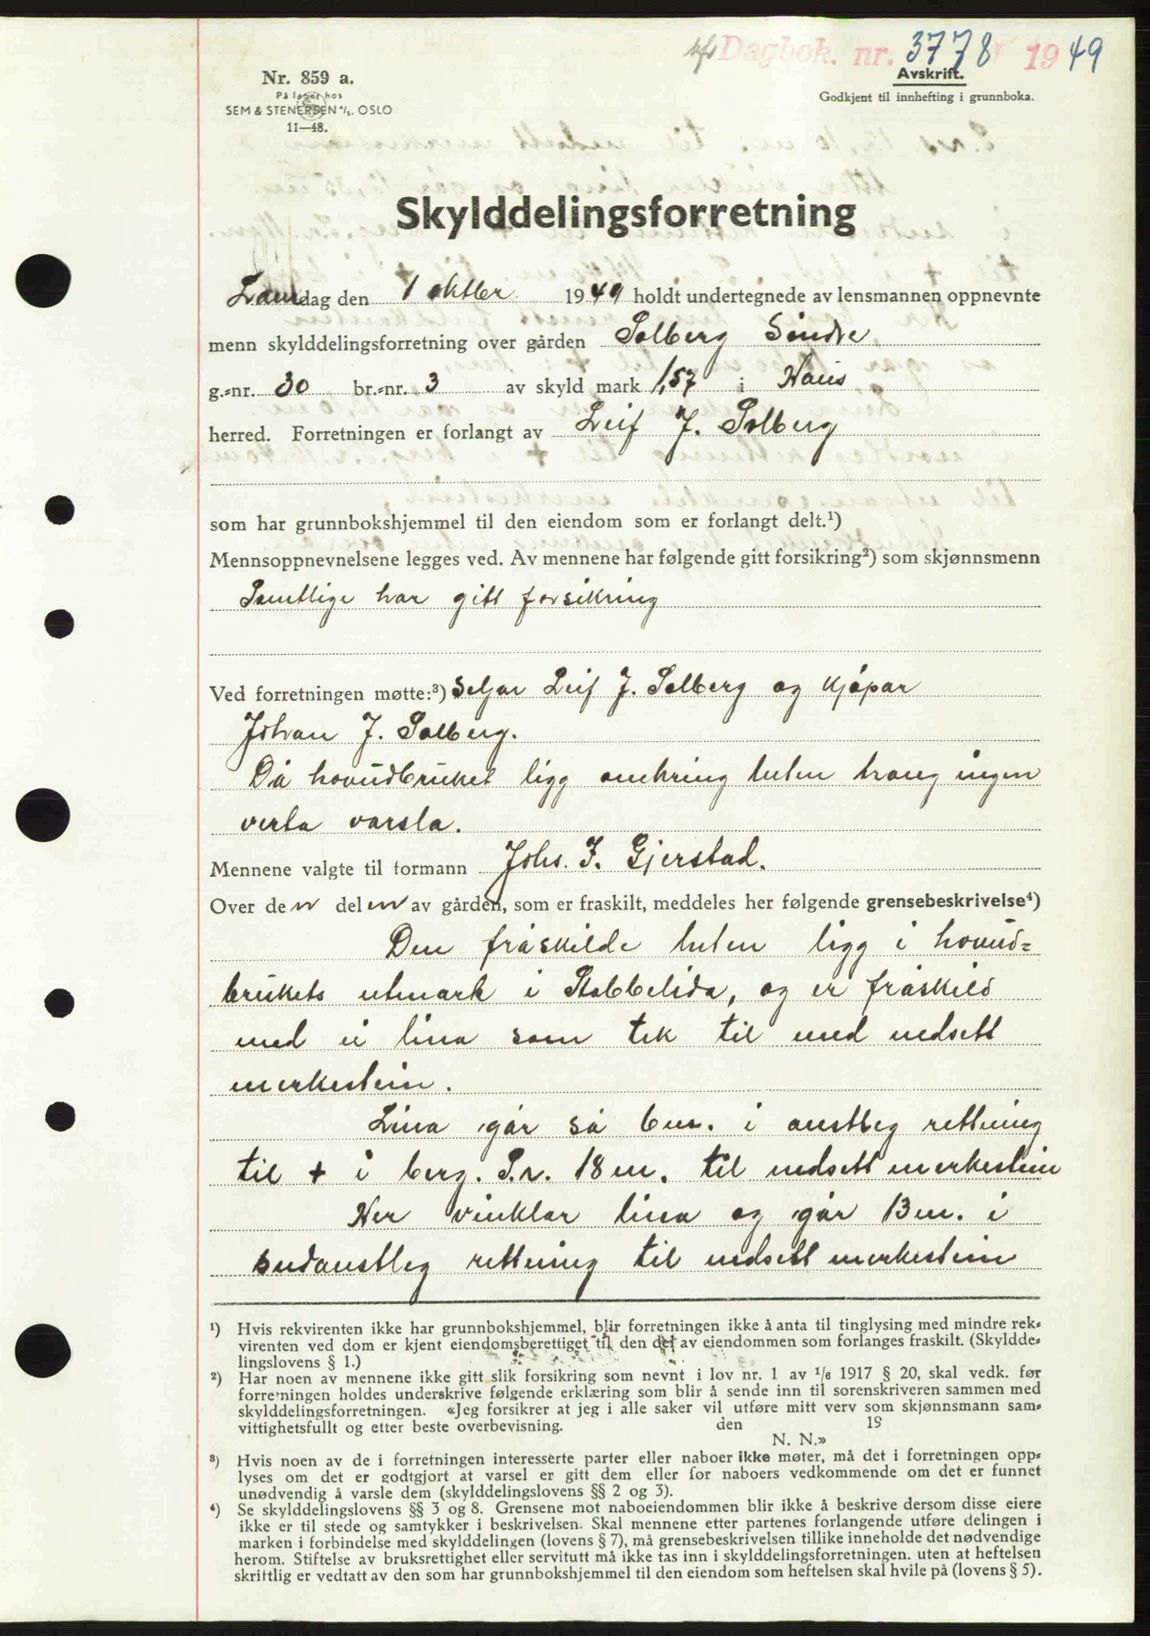 Dagbok. nr. 3778 1949
Avskrift.
Godkjent til innhefting i grunnboka.
Nr. 859 a.
På lager hos
SEM & STENERSEN A/S. OSLO
11—48.
Skylddelingsforretning
Laurdag den 1 oktber 1949 holdt undertegnede av lensmannen oppnevnte
menn skylddelingsforretning over gården Solberg Søndre
g.-nr. 30 br.-nr. 3 av skyld mark 1,57 i Haus
herred. Forretningen er forlangt av Leif J. Solberg
som har grunnbokshjemmel til den eiendom som er forlangt delt.¹)
Mennsoppnevnelsene legges ved. Av mennene har følgende gitt forsikring²) som skjønnsmenn
Samtlige har gitt forsikring
Ved forretningen møtte:³) Seljar Leif J. Solberg og kjøpar
Johan J. Solberg.
Då hovudbruket ligg omkring luten trong ingen
verta varsla.
Mennene valgte til formann Johs. J. Gjerstad.
Over den delen av gården, som er fraskilt, meddeles her følgende grensebeskrivelse⁴)
Den fråskilde luten ligg i hovud=
brukets utmark i Stabbelida, og er fråskild
med ei lina som tek til med nedsett
merkestein.
Lina går så 6 m. i austleg rettning
til + i berg. S.r. 18 m. til nedsett merkestein
Her vinklar lina og går 13 m. i
sudaustleg rettning til nedsett merkestein
¹) Hvis rekvirenten ikke har grunnbokshjemmel, blir forretningen ikke å anta til tinglysing med mindre rek-
virenten ved dom er kjent eiendomsberettiget til den del av eiendommen som forlanges fraskilt. (Skyldde-
lingslovens § 1.)
²) Har noen av mennene ikke gitt slik forsikring som nevnt i lov nr. 1 av 1/6 1917 § 20, skal vedk. før
forretningen holdes underskrive følgende erklæring som blir å sende inn til sorenskriveren sammen med
skylddelingsforretningen. «Jeg forsikrer at jeg i alle saker vil utføre mitt verv som skjønnsmann sam-
vittighetsfullt og etter beste overbevisning. den 19
N. N.»
³) Hvis noen av de i forretningen interesserte parter eller naboer ikke møter, må det i forretningen opp-
lyses om det er godtgjort at varsel er gitt dem eller for naboers vedkommende om det er funnet
unødvendig å varsle dem (skylddelingslovens §§ 2 og 3).
⁴) Se skylddelingslovens §§ 3 og 8. Grensene mot naboeiendommen blir ikke å beskrive dersom disse eiere
ikke er til stede og samtykker i beskrivelsen. Skal mennene etter partenes forlangende utføre delingen i
marken i forbindelse med skylddelingen (lovens § 7), må grensebeskrivelsen tillike inneholde det nødvendige
herom. Stiftelse av bruksrettighet eller servitutt må ikke tas inn i skylddelingsforretningen. uten at heftelsen
skriftlig er vedtatt av den som har grunnbokshjemmel til den eiendom som heftelsen skal hvile på (lovens § 5).